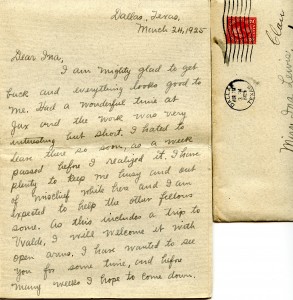 Dallas, Texas,
March 24, 1925
Dear Ina,
I am mighty glad to get
back and everything looks good to
me. Had a wonderful time at
and the work was very
interesting but short. I hated to
leave there so soon, as a week
passed before I realized it. I have
plenty to keep me busy and out
of mischief while here and I am
expected to help the other fellows
some. As this includes a trip to
Uvalde, I will welcome it with
open arms. I have wanted to see
you for some time, and before
many weeks I hope to come down.
Miss Ina Lewis,